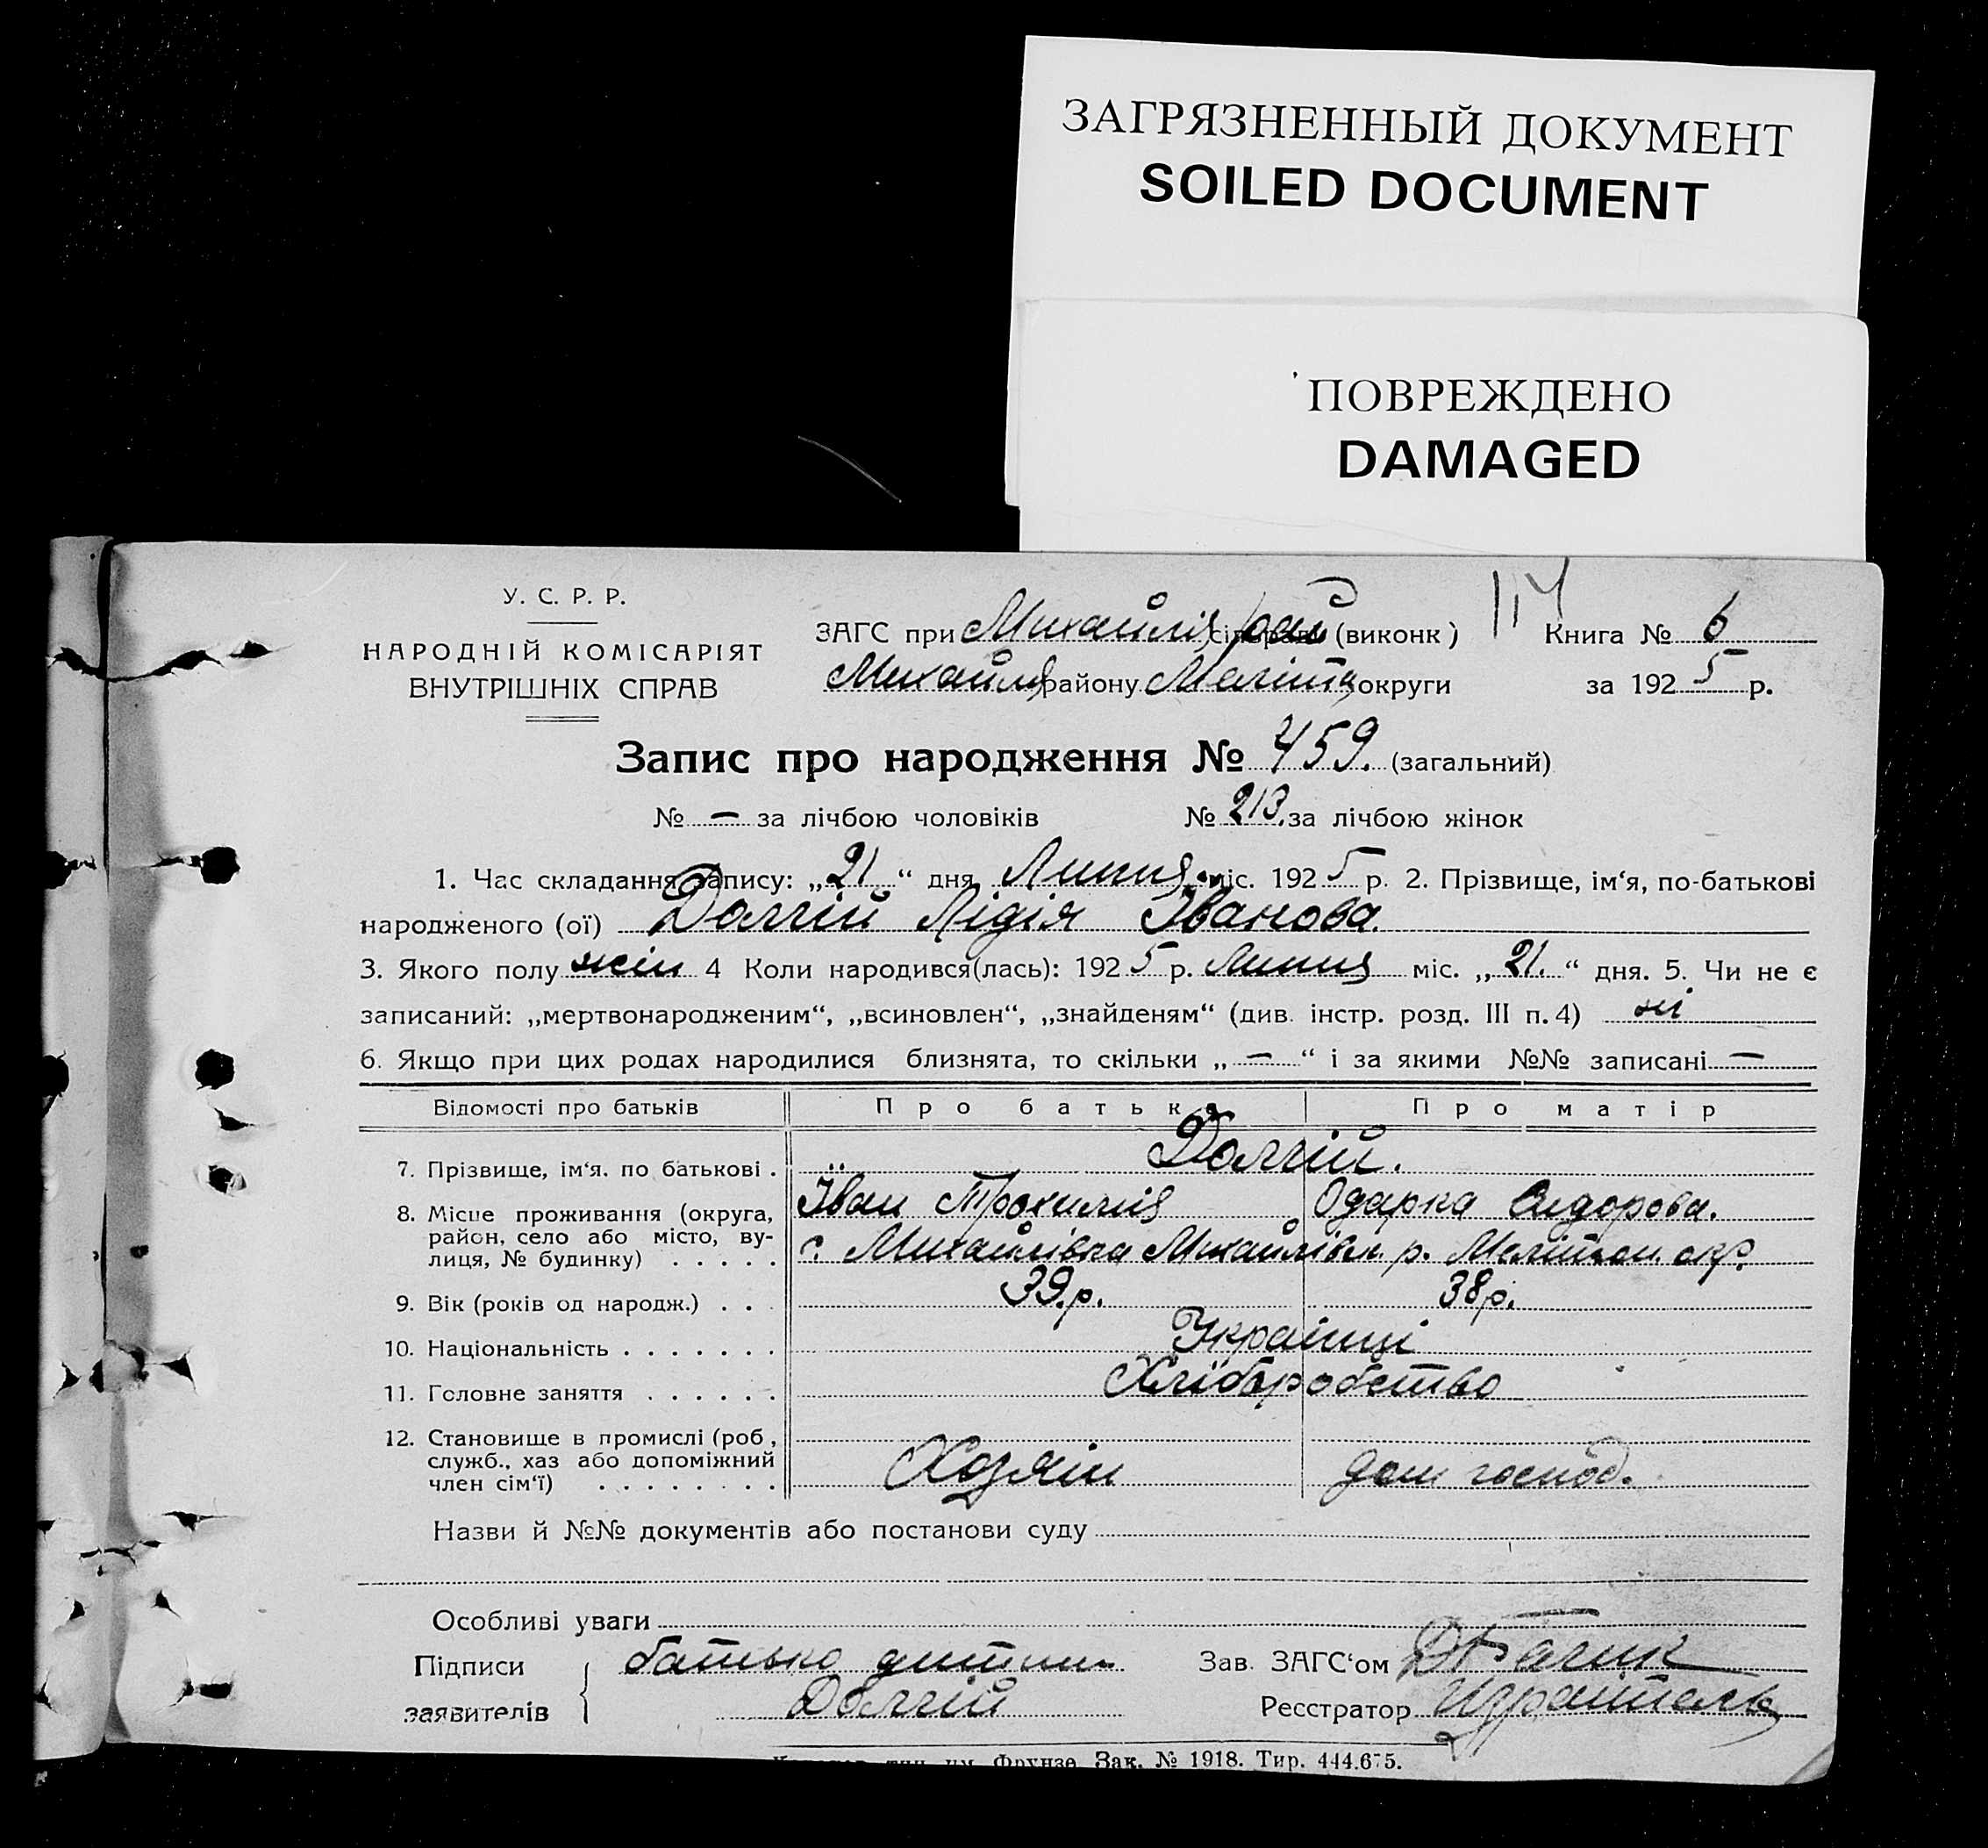 ЗАГРЯЗНЕННЫЙ ДОКУМЕНТ
SOILED DOCUMENT
ПОВРЕЖДЕНО
DAMAGED
У. С. Р. Р.
НАРОДНІЙ КОМІСАРІЯТ
ВНУТРІШНІХ СПРАВ
ЗАГС при Михайлів рай (виконк) Книга № 6
Михайлів району Меліт округи за 1925 р.
Запис про народження № 459. (загальний)
№ — за лічбою чоловіків № 213. за лічбою жінок
1. Час складання запису: „21“ дня Липня міс. 1925 р. 2. Прізвище, ім‘я, по-батькові
народженого (ої) Долгій Лідія Іванова.
3. Якого полу жін 4 Коли народився(лась): 1925 р. Липня міс. „21.“ дня. 5. Чи не є
записаний: „мертвонародженим“, „всиновлен“, „знайденям“ (див. інстр. розд. III п. 4) ні
6. Якщо при цих родах народилися близнята, то скільки „—“ і за якими №№ записані —
Відомості про батьків Про батька Про матір
7. Прізвище, ім‘я. по батькові . Долгій.
Іван Трохимів Одарка Сидорова.
8. Місце проживання (округа,
район, село або місто, ву-
лиця, № будинку) . . . . . с. Михайлівка Михайлівк. р. Мелітоп. окр.
9. Вік (років од народж.) . . . 39.р. 38р.
10. Національність . . . . . . . Українці
11. Головне заняття . . . . . . Хліборобство
12. Становище в промислі (роб.,
служб., хаз або допоміжний
член сім‘ї) . . . . . . . . Хозяїн дом господ.
Назви й №№ документів або постанови суду
Особливі уваги
Підписи батько дитини Зав. ЗАГС‘ом
заявителів Долгій Реєстратор
тип. им. Фрунзе. Зак. № 1918. Тир. 444.675.